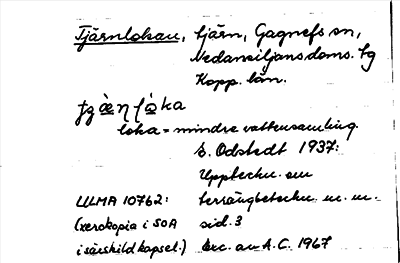 Tjärnlokau, tjärn, Gagnefs sn,
Nedansiljans doms. tg
Kopp. län.
loka = mindre vattensamling.
E. Odstedt 1937:
Uppteckn. om
ULMA 10762: terrängbeteckn. m. m.
(xerokopia i SOA sid. 3
i särskild kapsel.) exc. av A.C. 1967